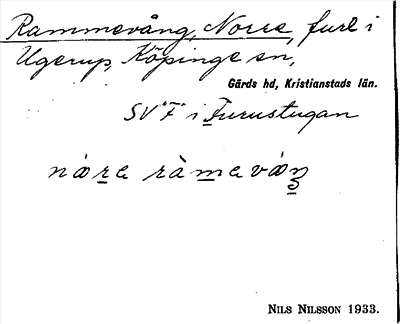 Rammevång, Norra, furl i
Ugerup, Köpinge sn,
Gärds hd, Kristianstads län.
SV "F" i Furustugan
nɑ́re rɑ̀mevɑ́ŋ
NILS NILSSON 1933.